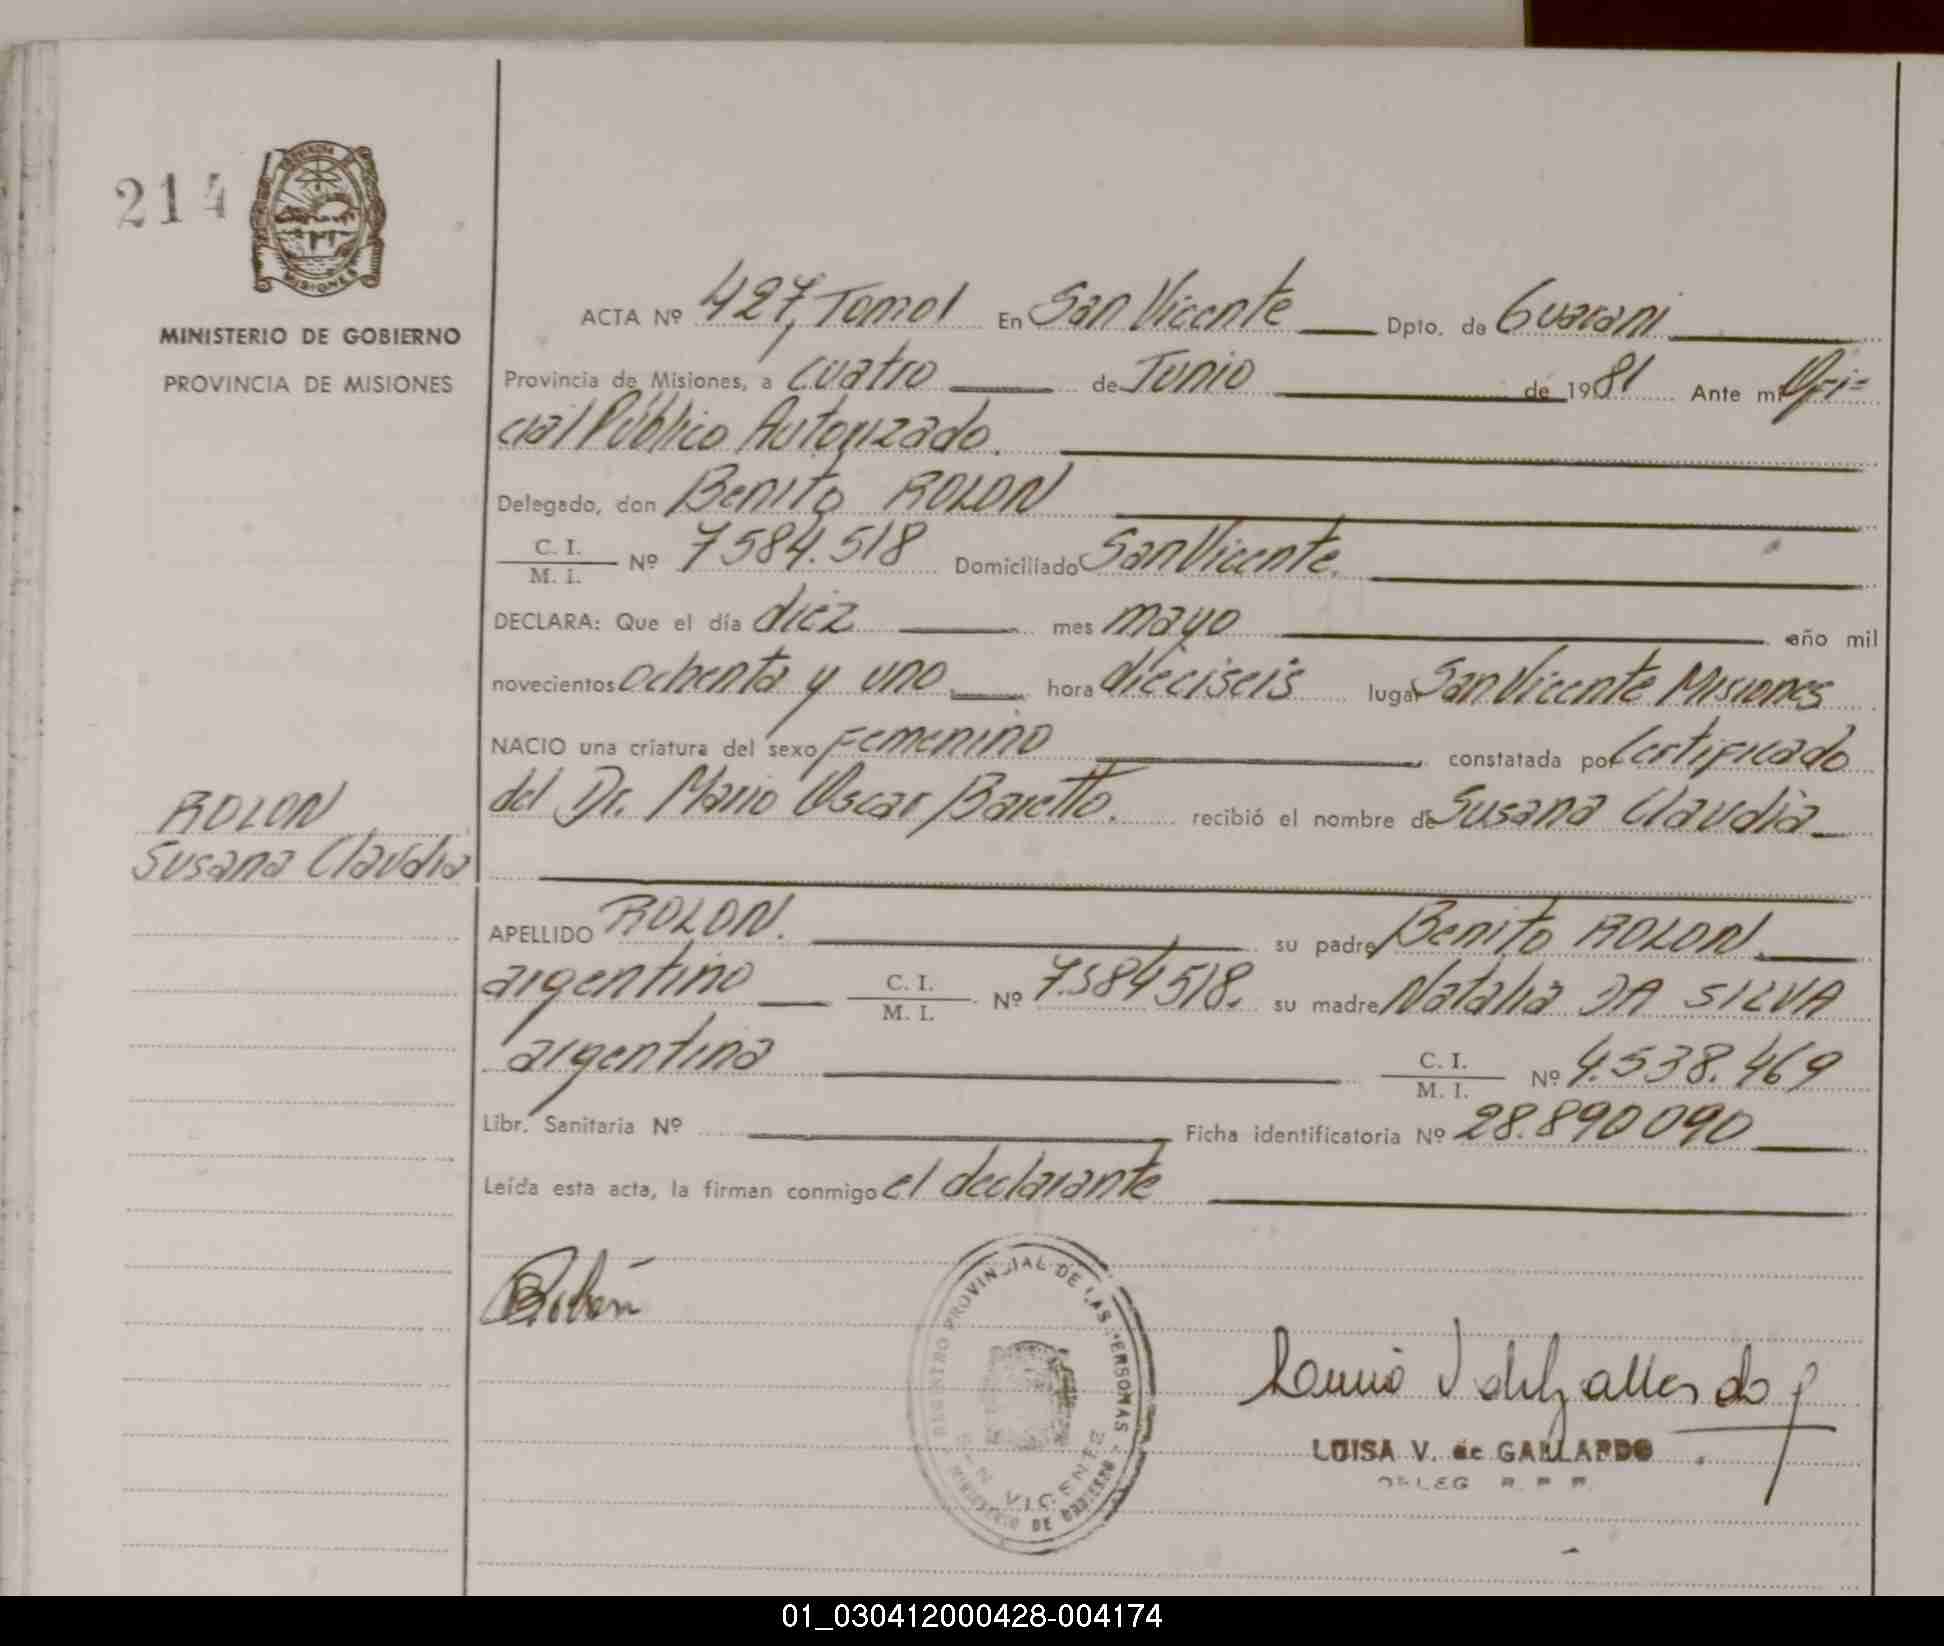 214
MINISTERIO DE GOBIERNO
PROVINCIA DE MISIONES
ACTA Nº 427, Tomo I En San Vicente Dpto. de Guarani
Provincia de Misiones, a cuatro de Junio de 1981 Ante mi Ofi=
cial Público Autorizado.
Delegado, don Benito ROLON
C. I.
M. I. Nº 7584.518 Domiciliado San Vicente.
DECLARA: Que el día diez mes mayo año mil
novecientos ochenta y uno hora dieciseis lugar San Vicente Misiones
NACIO una criatura del sexo Femenino constatada por Certificado
del Dr. Mario Oscar Baretto. recibió el nombre de Susana Claudia
ROLON
Susana Claudia
APELLIDO ROLON. su padre Benito ROLON.
argentino C. I.
M. I. Nº 7.584518. su madre Natalia DA SILVA
argentina C. I.
M. I. Nº 4.538.469
Libr. Sanitaria Nº Ficha identificatoria Nº 28.890090
Leída esta acta, la firman conmigo el declarante
REGISTRO PROVINCIAL DE LAS PERSONAS
SAN VICENTE
MINISTERIO DE GOBIERNO
LUISA V. de GALLARDO
DELEG. R. P. P.
01_030412000428-004174